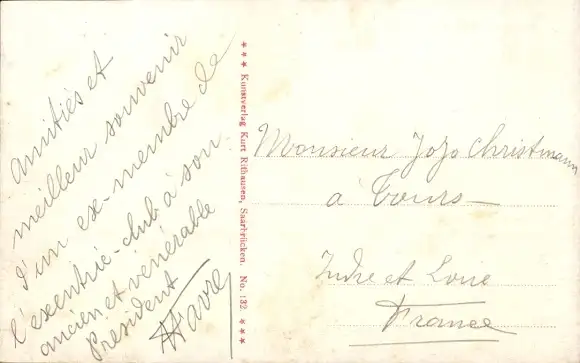 Amitiés et
meilleur souvenir
d'un ex-membre de
l'exentric-club à son
ancien et vénérable
Président
Favre
*** Kunstverlag Kurt Rithausen, Saarbrücken. No. 132 ***
Monsieur Jojo Christmann
à Tours
Indre et Loire
France